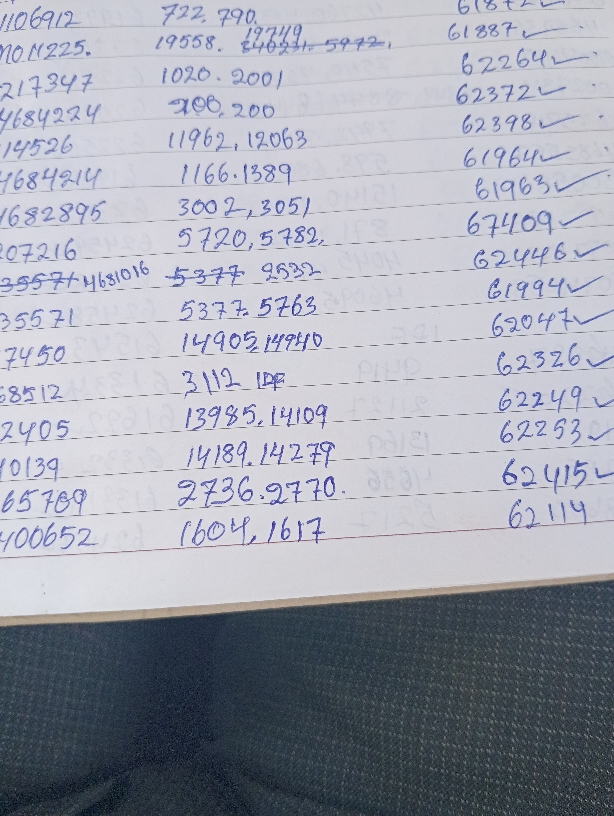 1106912 722. 790. 61872 ✓
MON225. 19558. 19749 5972. 61887 ✓
217347 1020. 2001 62264 ✓
4684224 200. 200 62372 ✓
14526 11962, 12063 62398 ✓
4684214 1166. 1389 61964 ✓
1682895 3002, 3051 61963 ✓
207216 5720, 5782, 67409 ✓
35571 4681016 5377 2532 62446 ✓
35571 5377. 5763 61994 ✓
7450 14905, 14940 62047 ✓
68512 3112 IDF 62326 ✓
2405 13985, 14109 62249 ✓
10139 14189. 14279 62253 ✓
65769 2736. 2770. 62415 ✓
400652 1604, 1617 62114